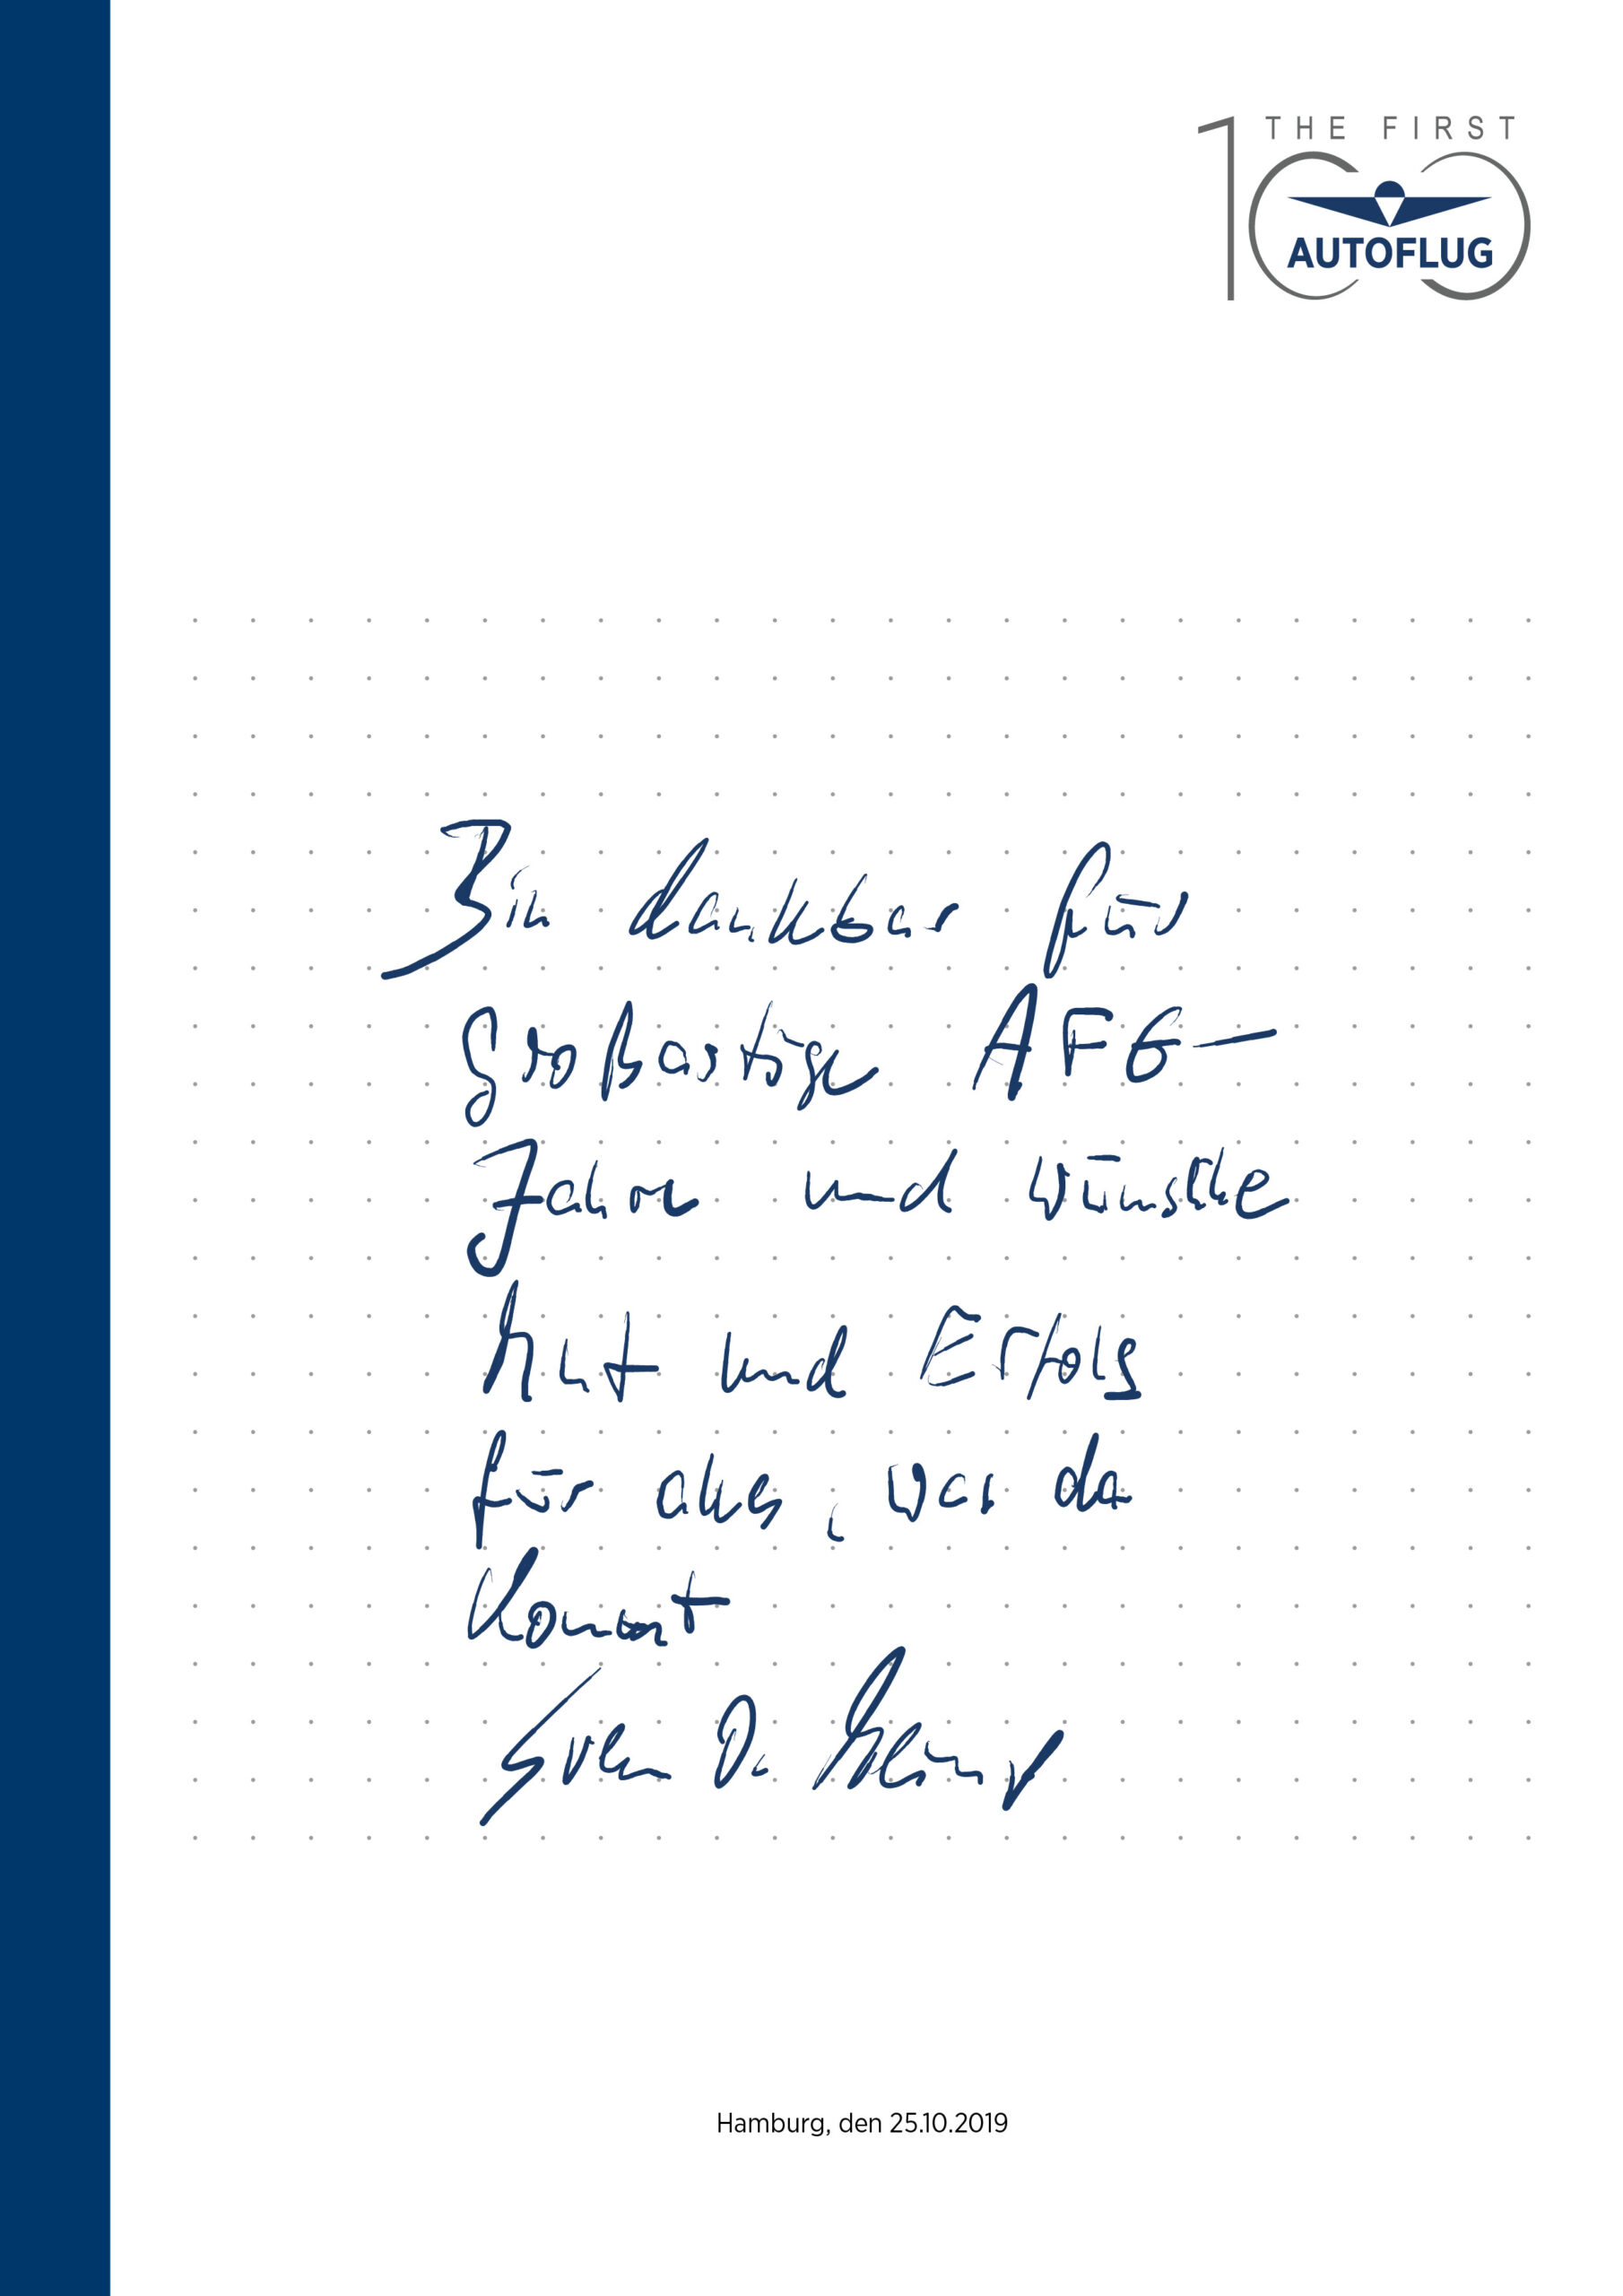 THE FIRST
100
AUTOFLUG
Bin dankbar für
großartige AFG-
Jahre und wünsche
Mut und Erfolg
für alles, was da
kommt
Sven
Hamburg, den 25.10.2019